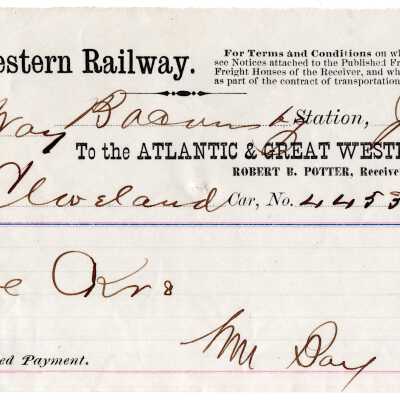 estern Railway.
For Terms and Conditions on wh
see Notices attached to the Published Fr
Freight Houses of the Receiver, and whi
as part of the contract of transportation
Way Bacons Station, J
To the ATLANTIC & GREAT WESTE
ROBERT B. POTTER, Receive
Cleveland Car, No. 4453
Wm Day
ed Payment.